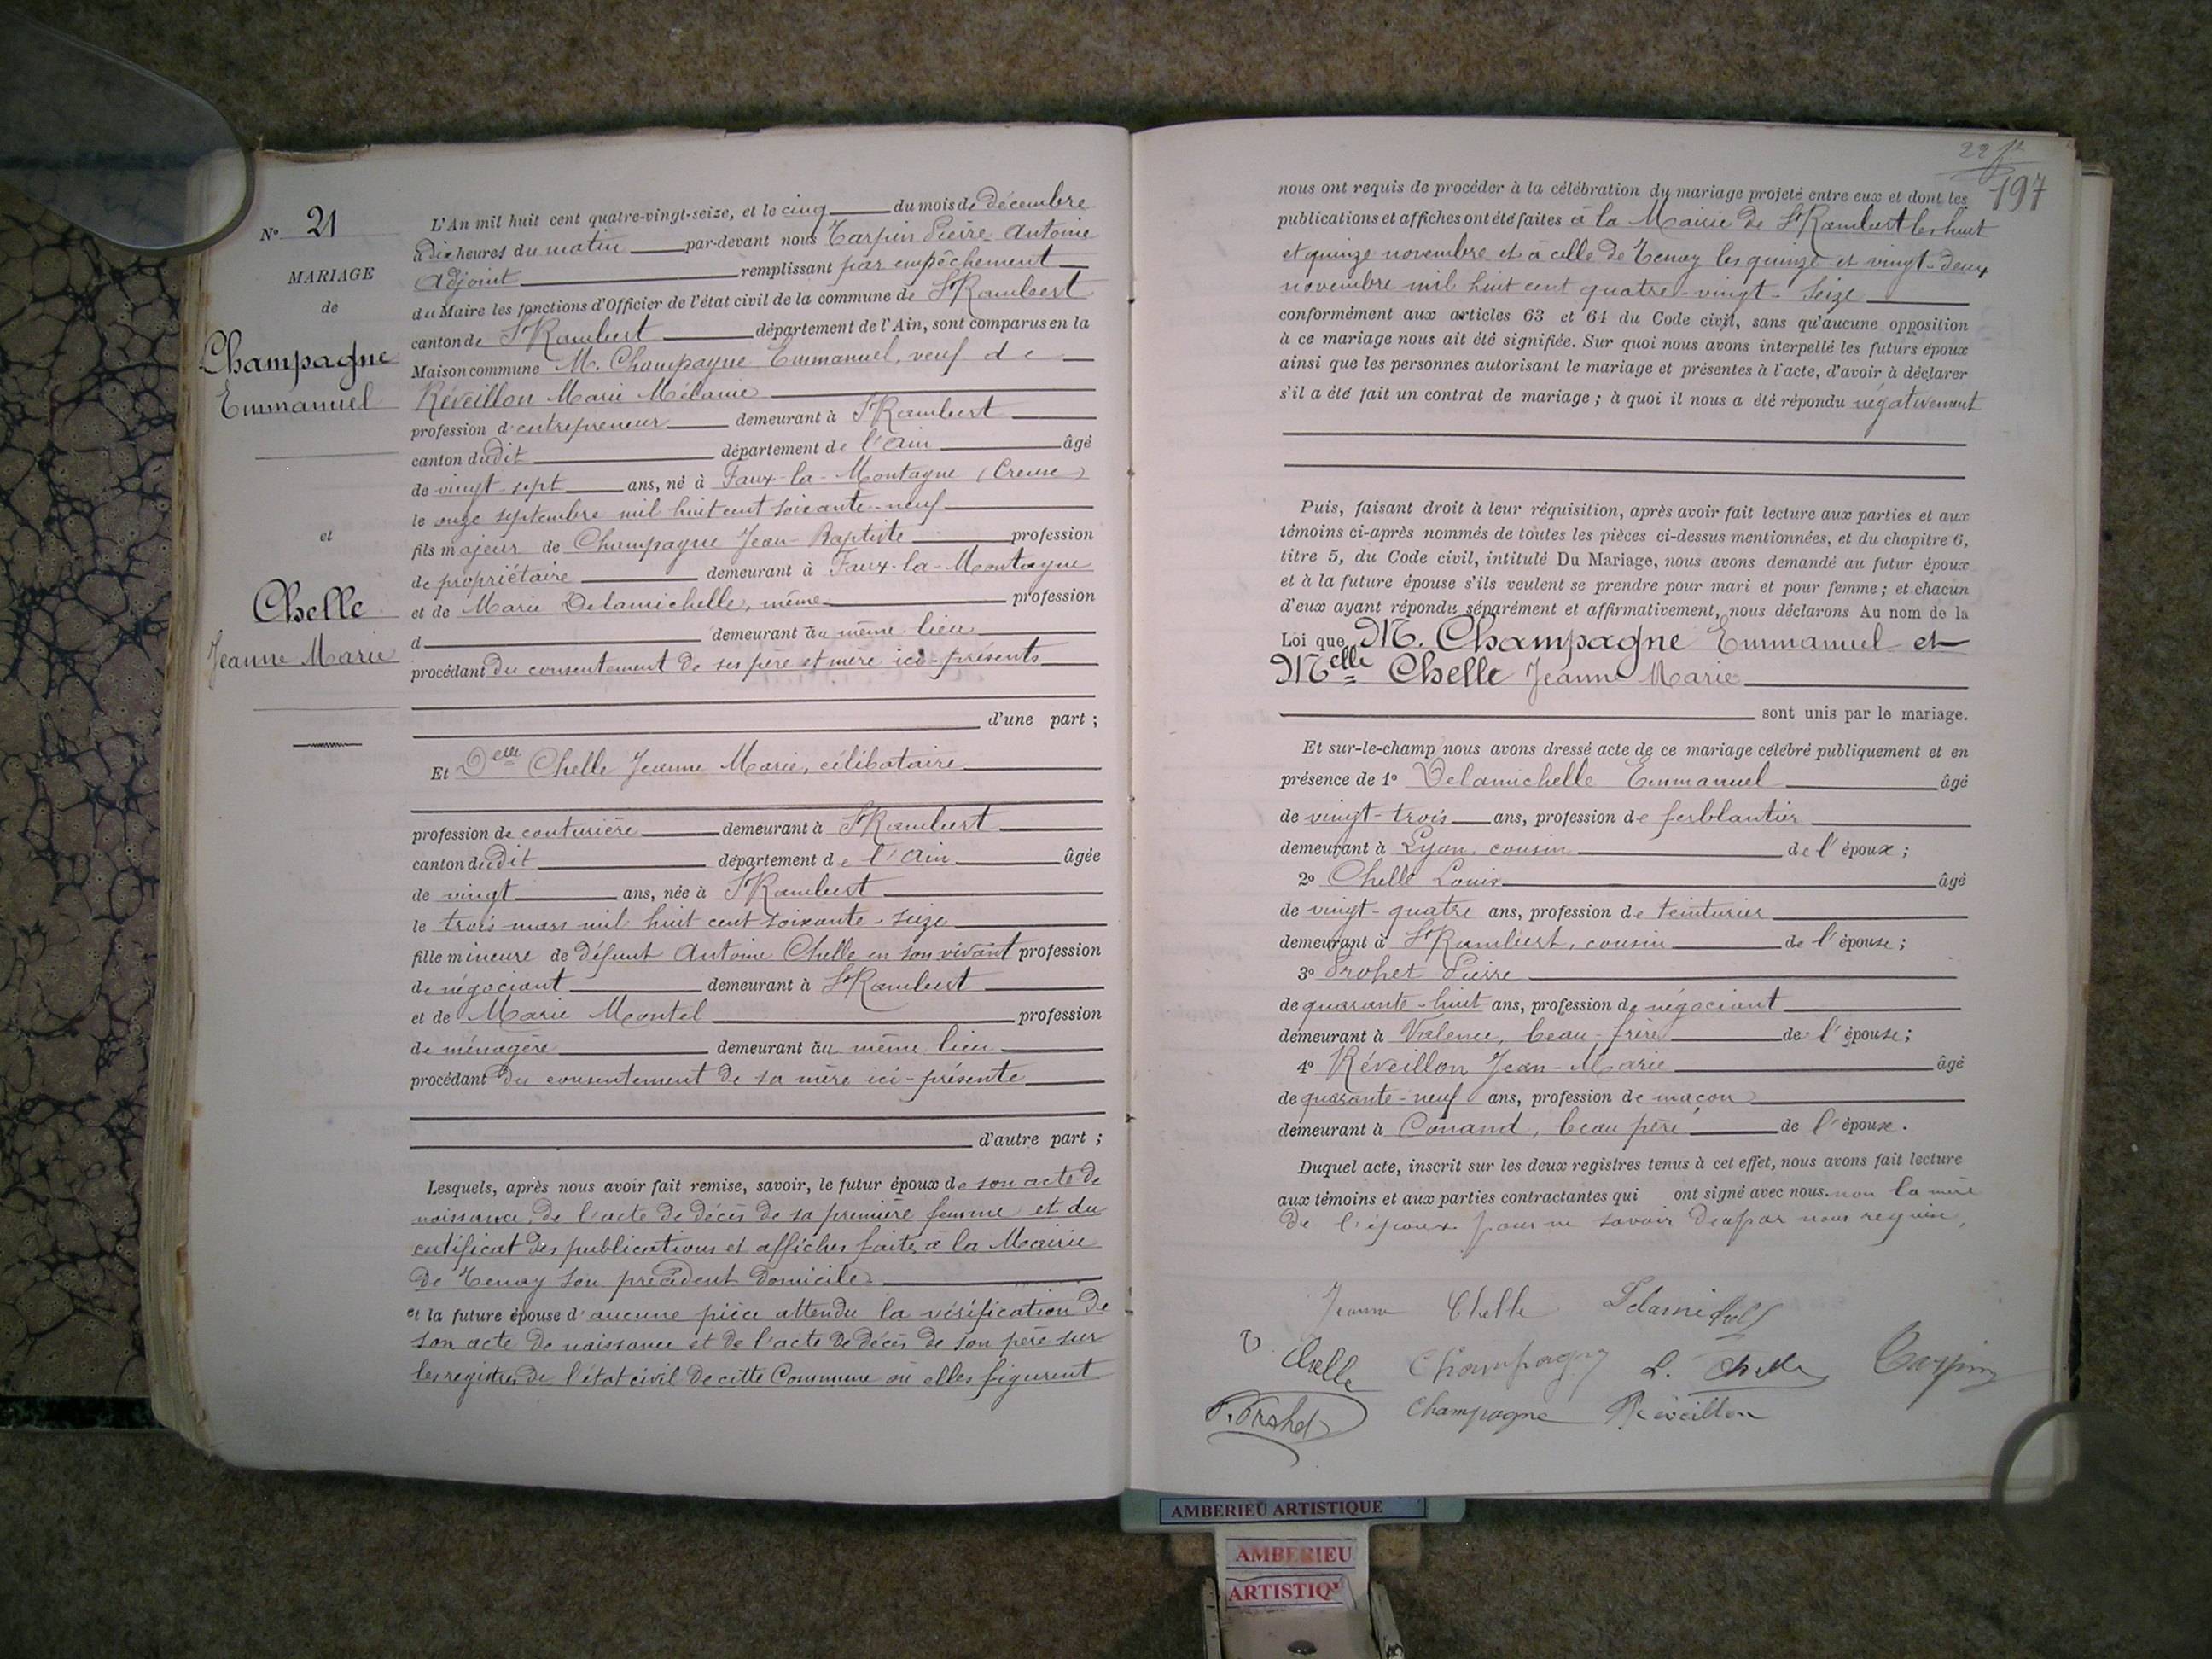 N° 21
MARIAGE
de
Champagne
Emmanuel
et
Chelle
Jeanne Marie
L'An mil huit cent quatre-vingt-seize, et le cinq du mois de décembre
à dix heures du matin par-devant nous Tarpin Pierre-Antoine
Adjoint remplissant par empêchement
du Maire les fonctions d'Officier de l'état civil de la commune de St Rambert
canton de St Rambert département de l'Ain, sont comparus en la
Maison commune M. Champagne Emmanuel, veuf de
Réveillon Marie Mélanie
profession d'entrepreneur demeurant à St Rambert
canton dudit département de l'Ain âgé
de vingt-sept ans, né à Faux-la-Montagne (Creuse)
le onze septembre mil huit cent soixante-neuf
fils majeur de Champagne Jean-Baptiste profession
de propriétaire demeurant à Faux-la-Montagne
et de Marie Delamichelle, même profession
d demeurant au même lieu
procédant du consentement de ses père et mère ici-présents
d'une part ;
Et Delle Chelle Jeanne Marie, célibataire
profession de couturière demeurant à St Rambert
canton dudit département de l'Ain âgée
de vingt ans, née à St Rambert
le trois mars mil huit cent soixante-seize
fille mineure de défunt Antoine Chelle en son vivant profession
de négociant demeurant à St Rambert
et de Marie Montel profession
de ménagère demeurant au même lieu
procédant du consentement de sa mère ici-présente
d'autre part ;
Lesquels, après nous avoir fait remise, savoir, le futur époux de son acte de
naissance, de l'acte de décès de sa première femme et du
certificat des publications et affiches faites à la Mairie
de Tenay son précédent domicile
et la future épouse d'aucune pièce attendu la vérification de
son acte de naissance et de l'acte de décès de son père sur
les registres de l'état civil de cette Commune où elles figurent
22 ft
197
nous ont requis de procéder à la célébration du mariage projeté entre eux et dont les
publications et affiches ont été faites à la Mairie de St Rambert les huit
et quinze novembre et à celle de Tenay les quinze et vingt-deux
novembre mil huit cent quatre-vingt-seize
conformément aux articles 63 et 64 du Code civil, sans qu'aucune opposition
à ce mariage nous ait été signifiée. Sur quoi nous avons interpellé les futurs époux
ainsi que les personnes autorisant le mariage et présentes à l'acte, d'avoir à déclarer
s'il a été fait un contrat de mariage ; à quoi il nous a été répondu négativement
Puis, faisant droit à leur réquisition, après avoir fait lecture aux parties et aux
témoins ci-après nommés de toutes les pièces ci-dessus mentionnées, et du chapitre 6,
titre 5, du Code civil, intitulé Du Mariage, nous avons demandé au futur époux
et à la future épouse s'ils veulent se prendre pour mari et pour femme ; et chacun
d'eux ayant répondu séparément et affirmativement, nous déclarons Au nom de la
Loi que M. Champagne Emmanuel et
Melle Chelle Jeanne Marie
sont unis par le mariage.
Et sur-le-champ nous avons dressé acte de ce mariage célébré publiquement et en
présence de 1° Delamichelle Emmanuel âgé
de vingt-trois ans, profession de ferblantier
demeurant à Lyon, cousin de l'époux ;
2° Chelle Louis âgé
de vingt-quatre ans, profession de teinturier
demeurant à St Rambert, cousin de l'épouse ;
3° Prohet Pierre
de quarante-huit ans, profession de négociant
demeurant à Valence, beau-frère de l'épouse ;
4° Réveillon Jean-Marie âgé
de quarante-neuf ans, profession de maçon
demeurant à Conand, beau père de l'épouse.
Duquel acte, inscrit sur les deux registres tenus à cet effet, nous avons fait lecture
aux témoins et aux parties contractantes qui ont signé avec nous. non la mère
de l'époux pour ne savoir de a par nous requise,
Jeanne Chelle Delamichell
Vve Chelle Champagne L. Chelle Tarpin
P. Prohet Champagne Réveillon
AMBERIEU ARTISTIQUE
AMBERIEU
ARTISTIQ